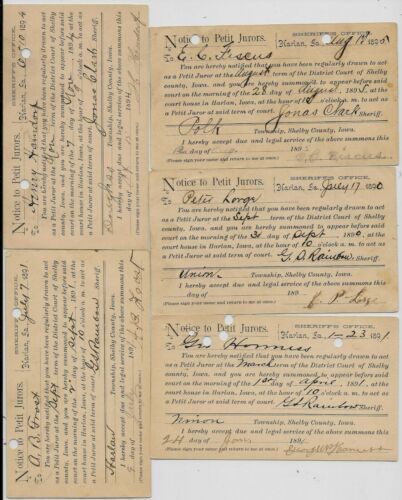 Notice to Petit Jurors.
SHERIFF'S OFFICE,
Harlan, Ia., Aug 189
To E. C. Fiscus
You are hereby notified that you were regularly drawn to act
as a Petit Juror at the August term of the District Court of Shelby
county, Iowa, and you are hereby summoned to appear before said
court on the morning of the 28 day of August, 189, at the
court house in Harlan, at the hour of 10 o'clock a. m. to act as a
Petit Juror at said term of court. Jonas Clark Sheriff.
Polk Township, Shelby County, Iowa.
I hereby accept due and legal service of the above summons this
day of 189
(Please sign your name and return to me at once.) E. C. Fiscus
Notice to Petit Jurors.
SHERIFF'S OFFICE,
Harlan, Ia., July 17 1890
To Peter
You are hereby notified that you were regularly drawn to act
as a Petit Juror at the Sept term of the District Court of Shelby
county, Iowa, and you are hereby summoned to appear before said
court on the morning of the 3d day of Sept 1890, at the
court house in Harlan, at the hour of 10 o'clock a. m. to act as a
Petit Juror at said term of court. G. D. Rainbow Sheriff.
Union Township, Shelby County, Iowa.
I hereby accept due and legal service of the above summons this
day of 189
(Please sign your name and return to me at once.)
Notice to Petit Jurors.
SHERIFF'S OFFICE,
Harlan, Ia., 1-23 1891
To Geo
You are hereby notified that you were regularly drawn to act
as a Petit Juror at the March term of the District Court of Shelby
county, Iowa, and you are hereby summoned to appear before said
court on the morning of the 1st day of April, 1891, at the
court house in Harlan, at the hour of 10 o'clock a. m. to act as a
Petit Juror at said term of court. G. D. Rainbow Sheriff.
Union Township, Shelby County, Iowa.
I hereby accept due and legal service of the above summons this
24 day of 189
(Please sign your name and return to me at once.)
Notice to Petit Jurors.
SHERIFF'S OFFICE,
Harlan, Ia., 1894
To Henry
You are hereby notified that you were regularly drawn to act
as a Petit Juror at the Nov term of the District Court of Shelby
county, Iowa, and you are hereby summoned to appear before said
court on the morning of the 7 day of Nov, 189, at the
court house in Harlan, at the hour of o'clock a. m. to act as a
Petit Juror at said term of court. Jonas Clark Sheriff.
Douglas Township, Shelby County, Iowa.
I hereby accept due and legal service of the above summons this
day of 1894
(Please sign your name and return to me at once.)
Notice to Petit Jurors.
SHERIFF'S OFFICE,
Harlan, Ia., July 7 1891
To A. B. Frost
You are hereby notified that you were regularly drawn to act
as a Petit Juror at the Sept term of the District Court of Shelby
county, Iowa, and you are hereby summoned to appear before said
court on the morning of the 2 day of Sept, 1891, at the
court house in Harlan, at the hour of o'clock a. m. to act as a
Petit Juror at said term of court. G. D. Rainbow Sheriff.
Harlan Township, Shelby County, Iowa.
I hereby accept due and legal service of the above summons this
9 day of July 189
(Please sign your name and return to me at once.) A. B. Frost